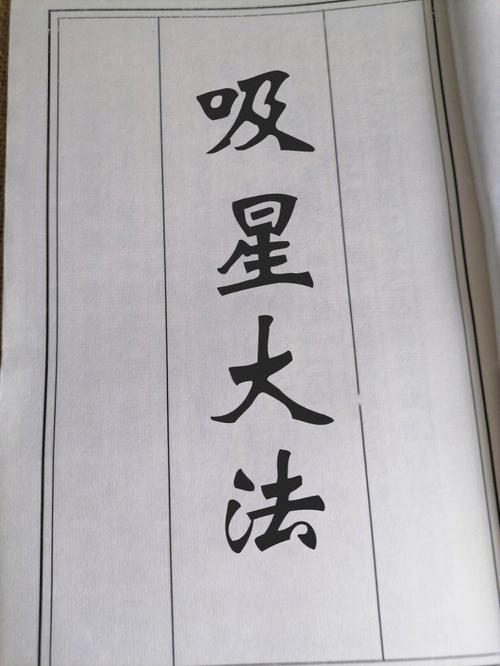 吸星大法